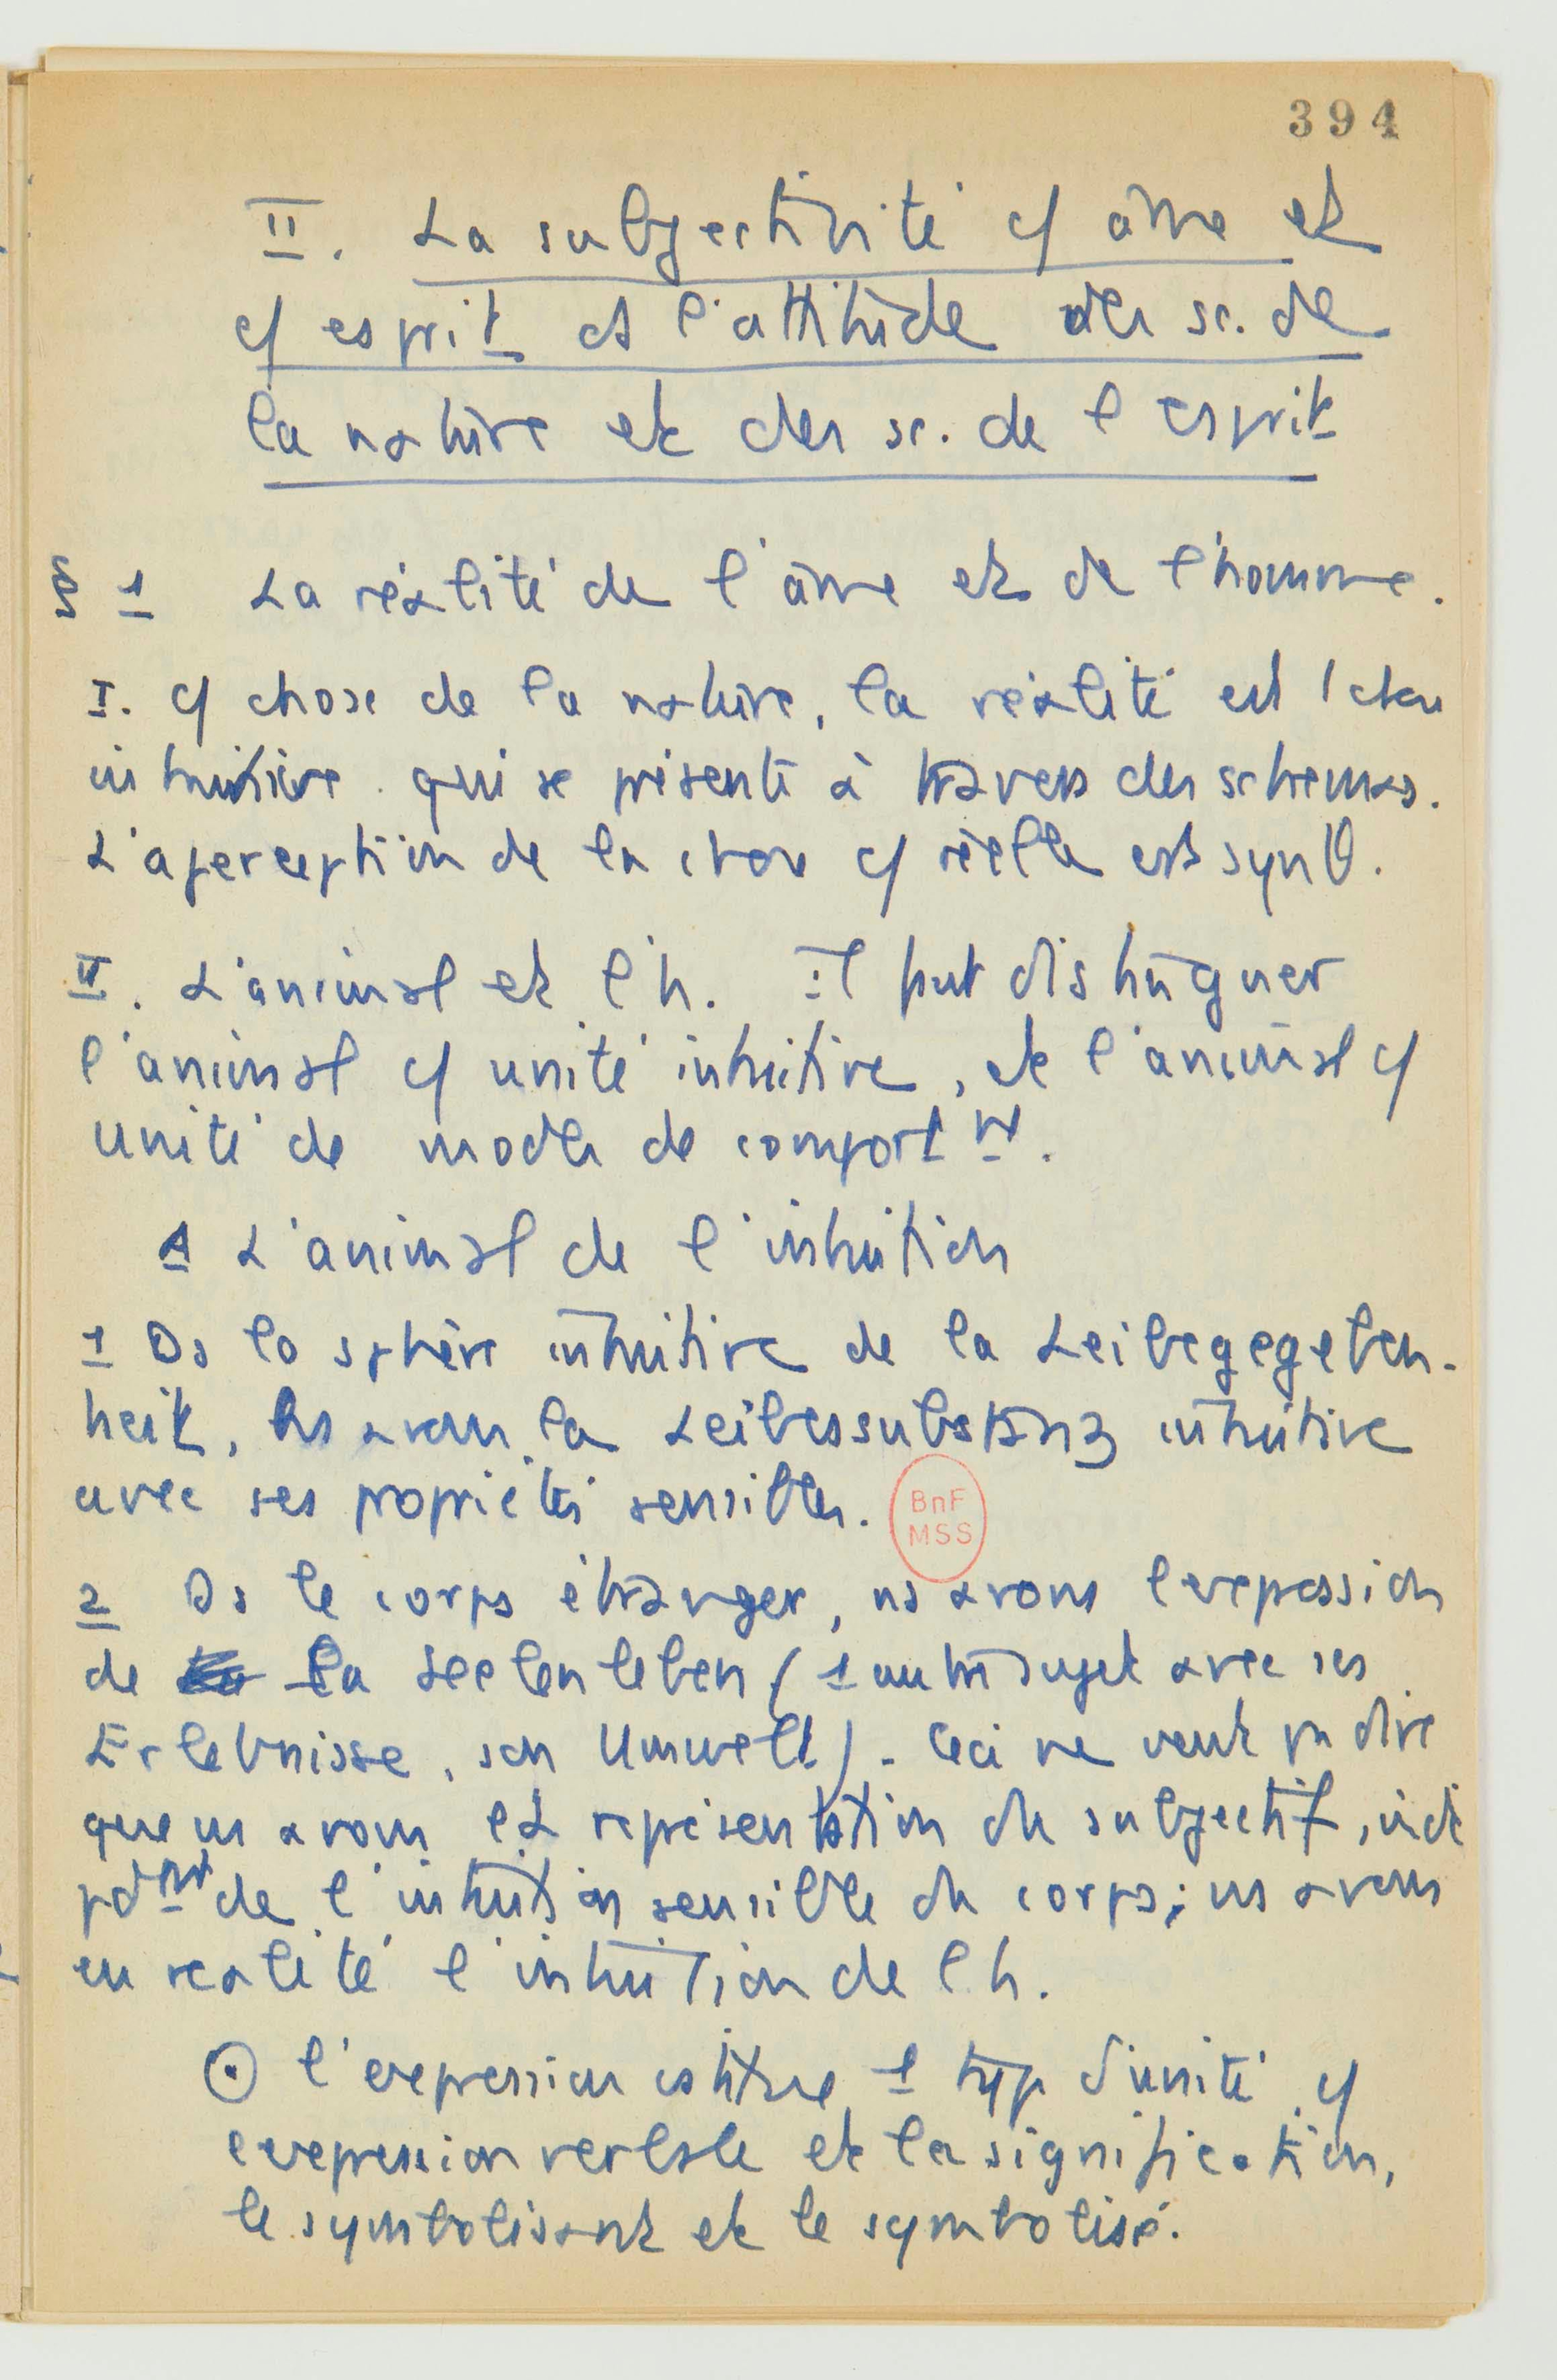 394
II. La subjectivité c/ âme et
c/ esprit et l'attitude des sc. de
la nature et des sc. de l'esprit
§ 1 La réalité de l'âme et de l'homme.
I. c/ chose de la nature, la réalité est
intuitive qui se présente à travers des schemas.
L'aperception de la chose c/ réelle est synθ.
II. L'animal et l'h. Il faut distinguer
l'animal c/ unité intuitive, et l'animal c/
unité de modes de comportnt.
A L'animal de l'intuition
1 Ds la sphère intuitive de la Leibegegeben-
heit, ns avons la Leibessubstanz intuitive
avec ses propriétés sensibles.
BnF
MSS
2 Ds le corps étranger, ns avons l'expression
de la Seelenleben (1 autre sujet avec ses
Erlebnisse, son Umwelt). Ceci ne veut pas dire
que ns avons la représentation du subjectif, indé
pdmt de l'intuition sensible du corps; ns avons
en réalité l'intuition de l'h.
⊙ l'expression constitue 1 type d'unité c/
expression verbale et la signification,
le symbolisant et le symbolisé.